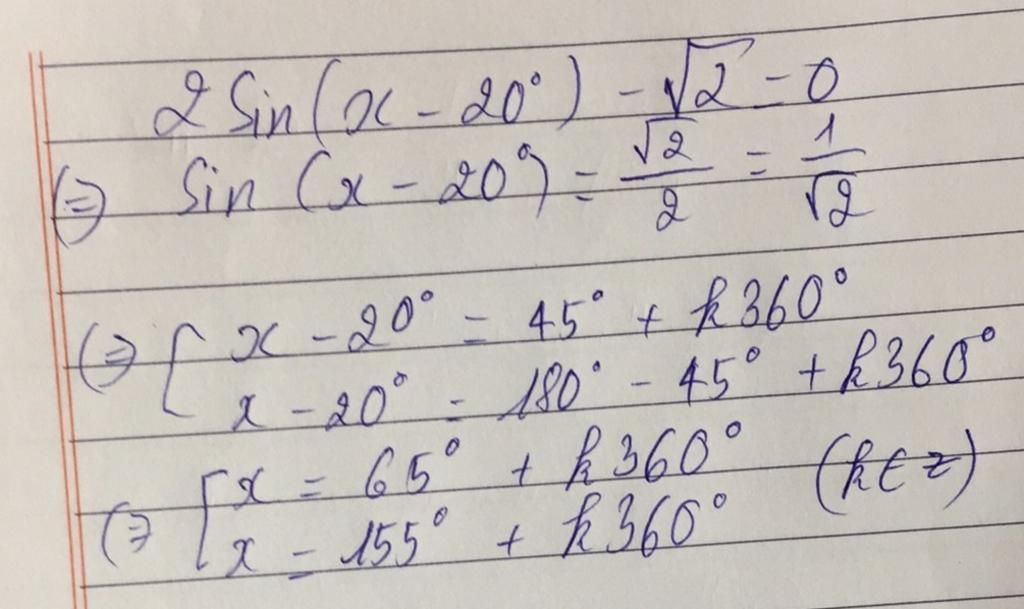 2 Sin(x - 20°) - √2 = 0
(=) Sin (x - 20°) = √2/2 = 1/√2
(=) [ x - 20° = 45° + k360°
x - 20° = 180° - 45° + k360°
(=) [ x = 65° + k360° (k ∈ Z)
x = 155° + k360°